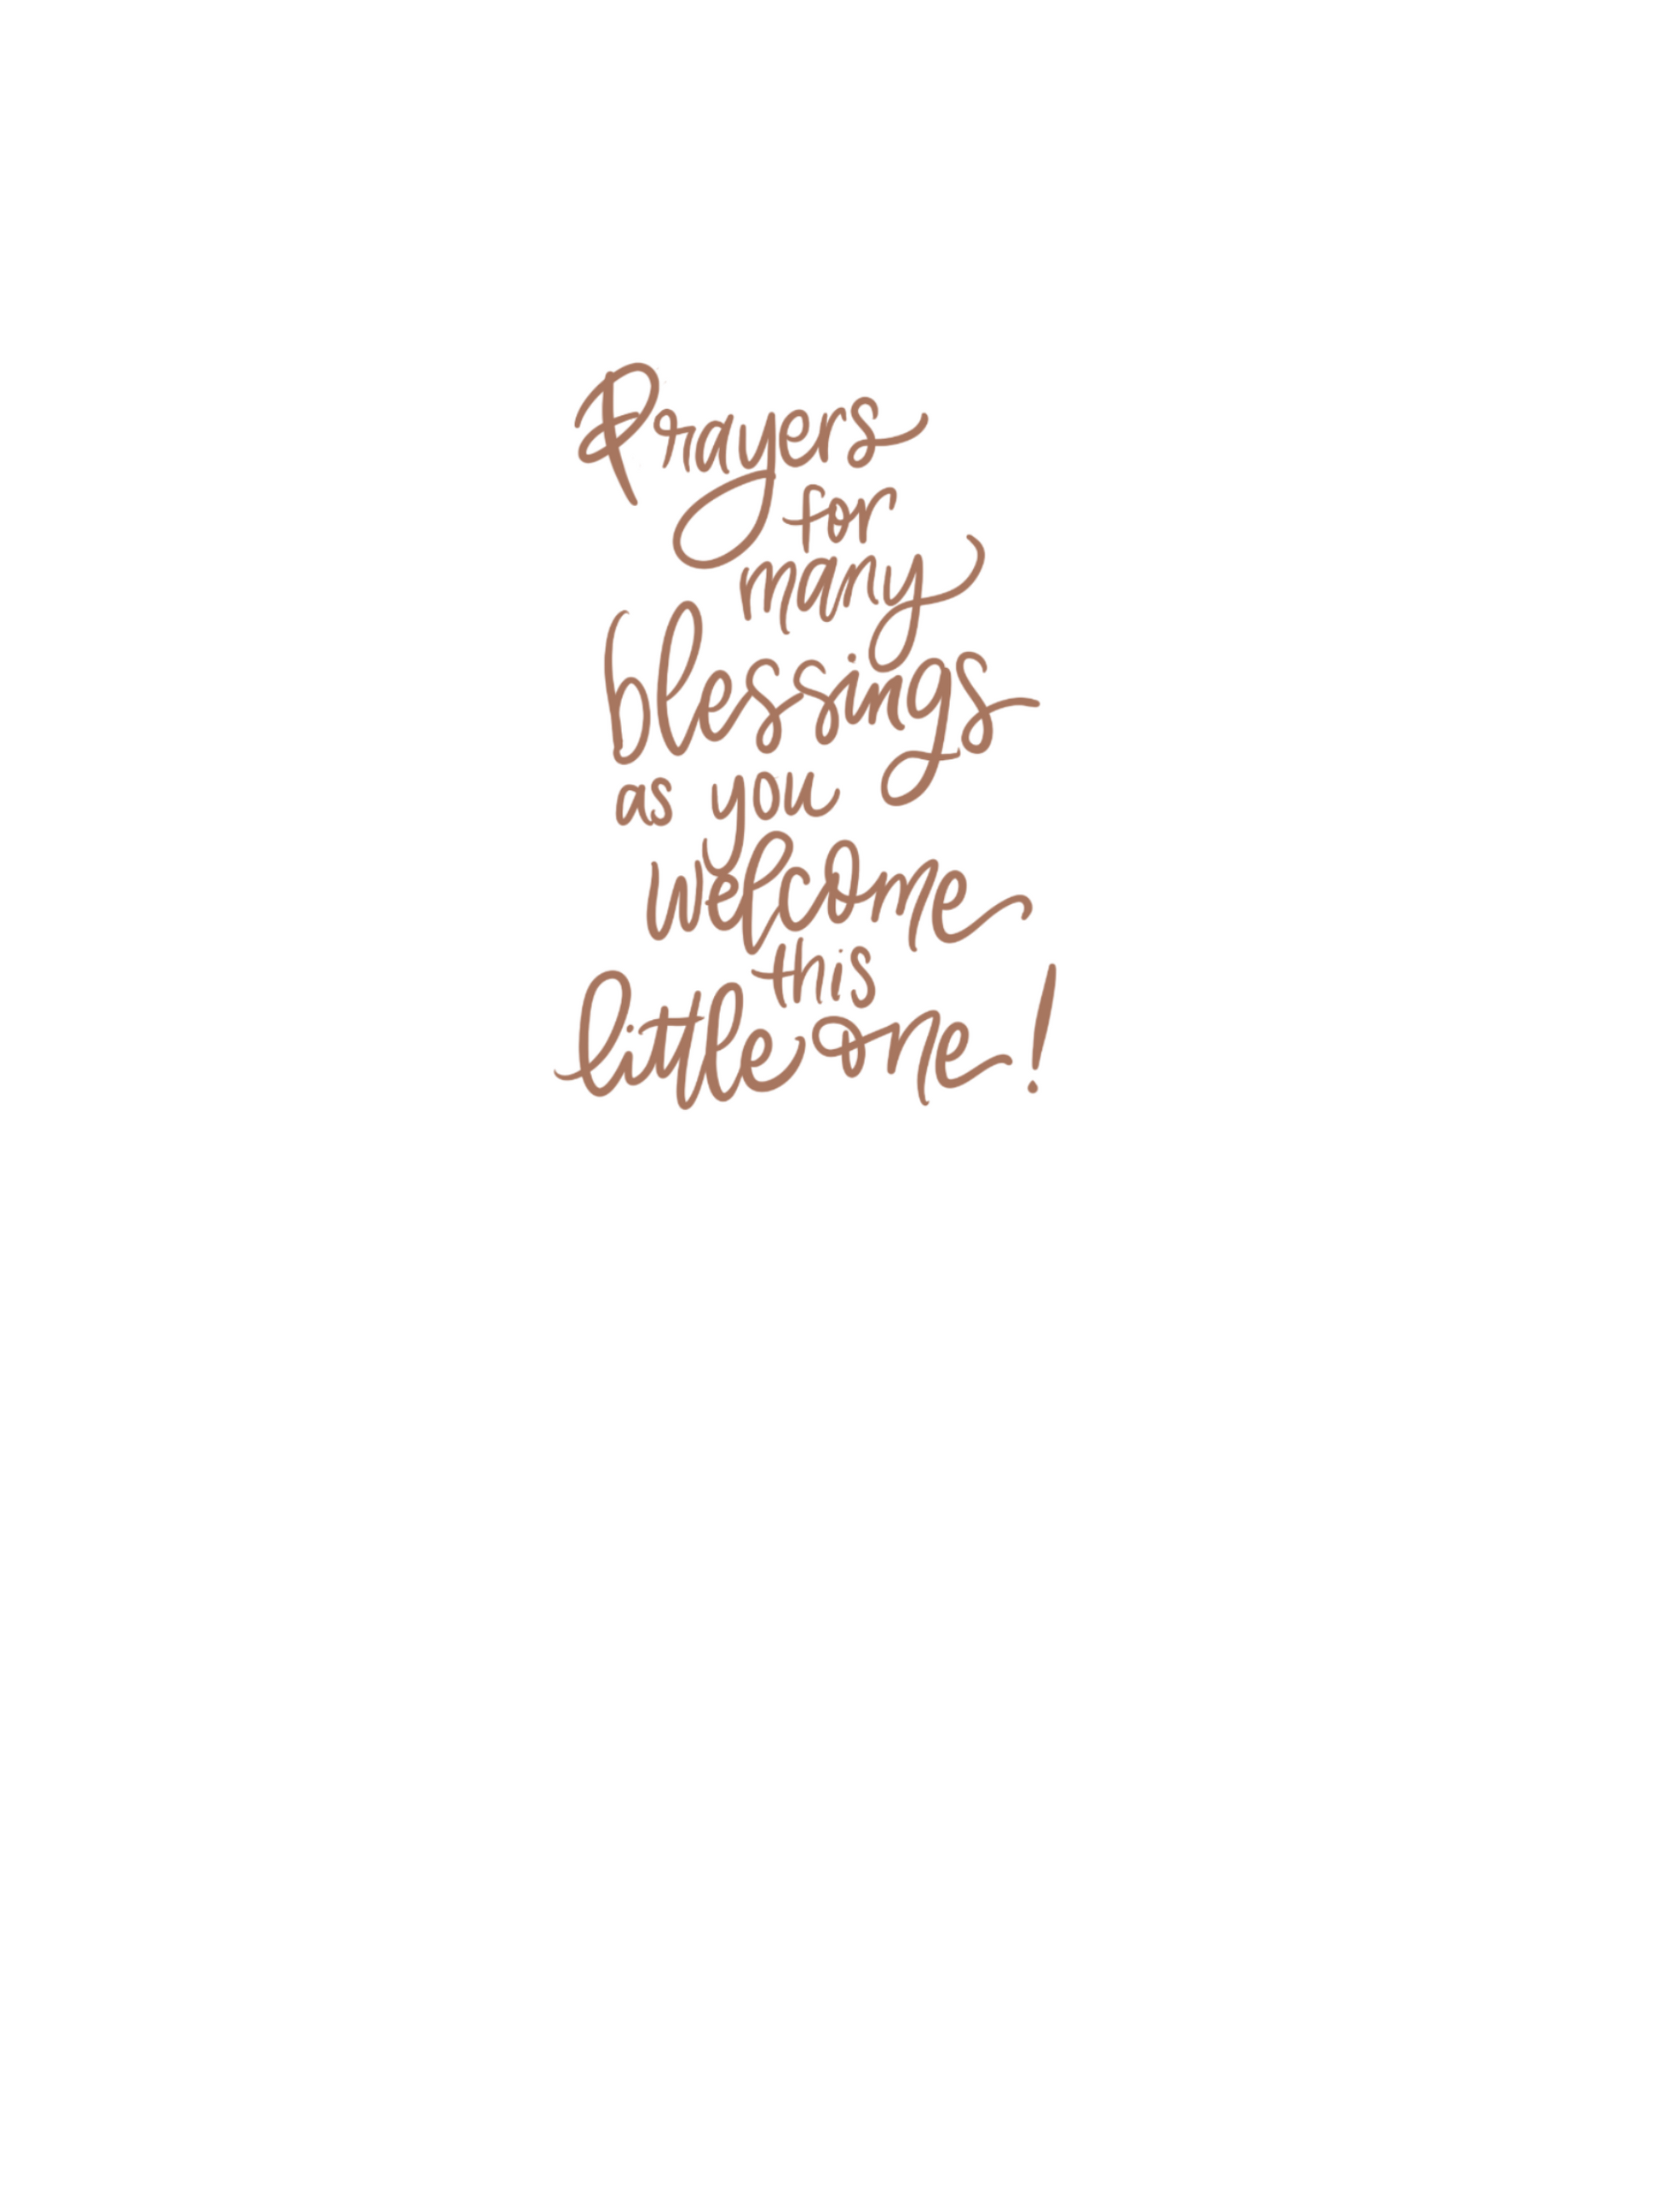 Prayers
for
many
blessings
as you
welcome
this
little one!